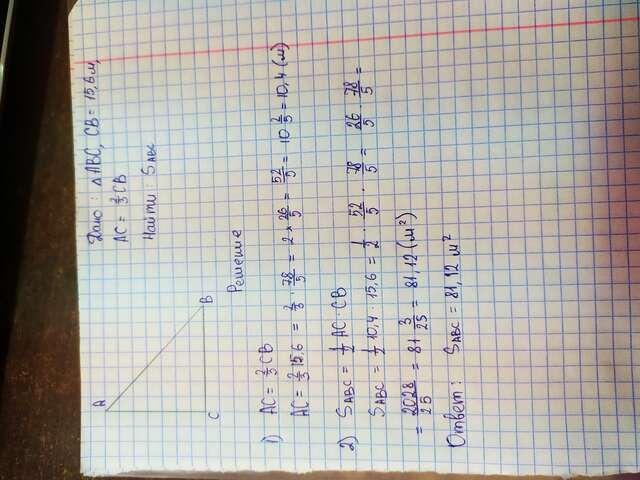 Дано: △ABC, CB = 15,6 м,
AC = 2/3 CB
Найти: S_ABC
A
B
C
Решение
1) AC = 2/3 CB
AC = 2/3 15,6 = 2/3 · 78/5 = 2 × 26/5 = 52/5 = 10 2/5 = 10,4 (м)
2) S_ABC = 1/2 AC · CB
S_ABC = 1/2 10,4 · 15,6 = 1/2 · 52/5 · 78/5 = 26/5 · 78/5 =
= 2028/25 = 81 3/25 = 81,12 (м²)
Ответ: S_ABC = 81,12 м²